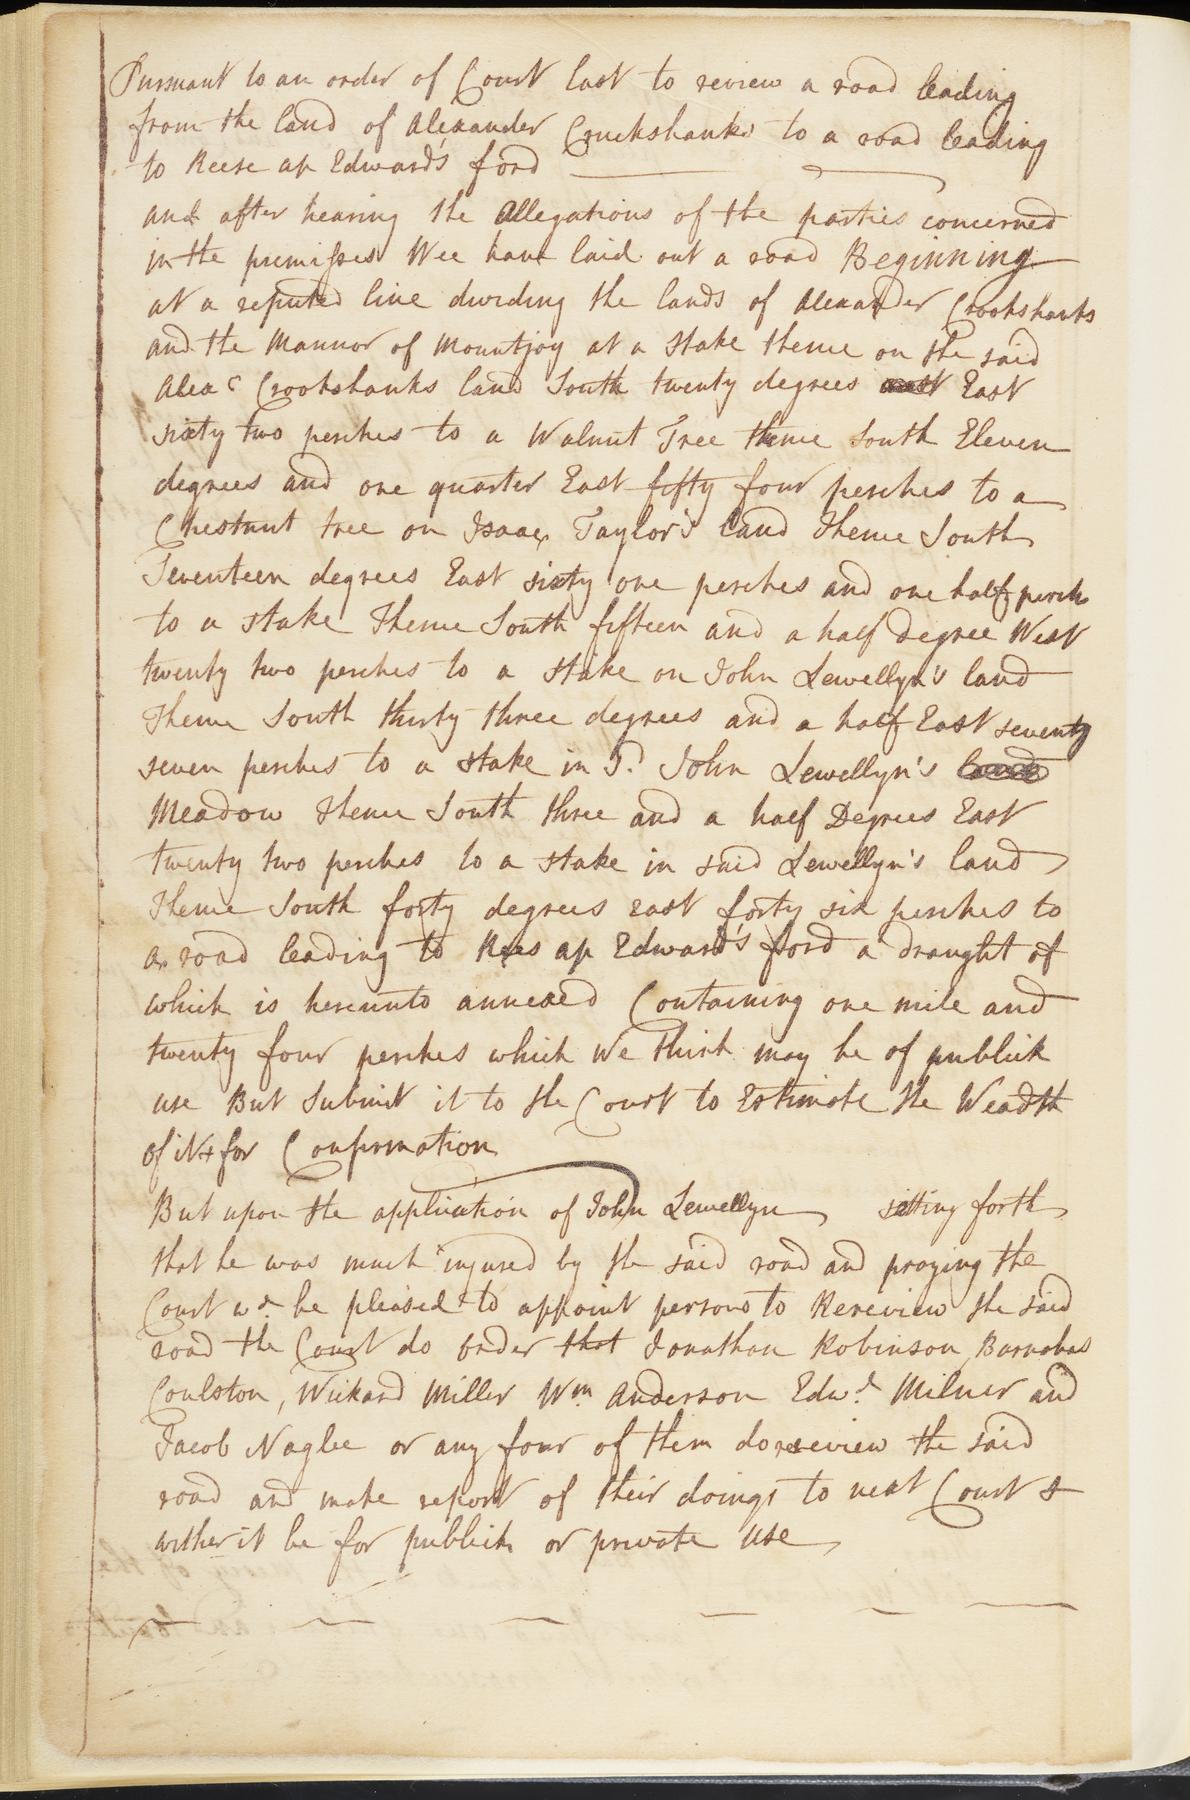 Pursuant to an order of Court last to review a road leading
from the land of Alexander Cruckshanks to a road leading
to Reese ap Edward's ford
and after hearing the Allegations of the parties concerned
in the premisses Wee have laid out a road Beginning
at a reputed line dividing the lands of Alexander Crookshanks
and the Mannor of Mountjoy at a Stake thence on the said
Alexr Crookshanks land South twenty degrees East
sixty two perches to a Walnut Tree thence South Eleven
degrees and one quarter East fifty four perches to a
Chestnut tree on Isaac Taylor's land Thence South
Seventeen degrees East sixty one perches and one half perch
to a stake Thence South fifteen and a half Degree West
twenty two perches to a stake on John Lewellyn's land
Thence South thirty three degrees and a half East seventy
seven perches to a stake in sd. John Lewellyn's
Meadow Thence South three and a half Degrees East
twenty two perches to a stake in said Lewellyn's land
Thence South forty degrees east forty six perches to
a road leading to Rees ap Edward's ford a draught of
which is hereunto annexed Containing one mile and
twenty four perches which we think may be of publick
use But Submit it to the Court to Estimate the Weadth
of it & for Confirmation
But upon the application of John Lewellyn setting forth
that he was much injured by the said road and praying the
Court wd be pleased to appoint persons to Rereview the said
road the Court do order that Jonathan Robinson, Barnabas
Coulston, Wickard Miller Wm Anderson Edwd. Milner and
Jacob Naglee or any four of them do rereview the said
road and make report of their doings to next Court &
wither it be for publick or private use